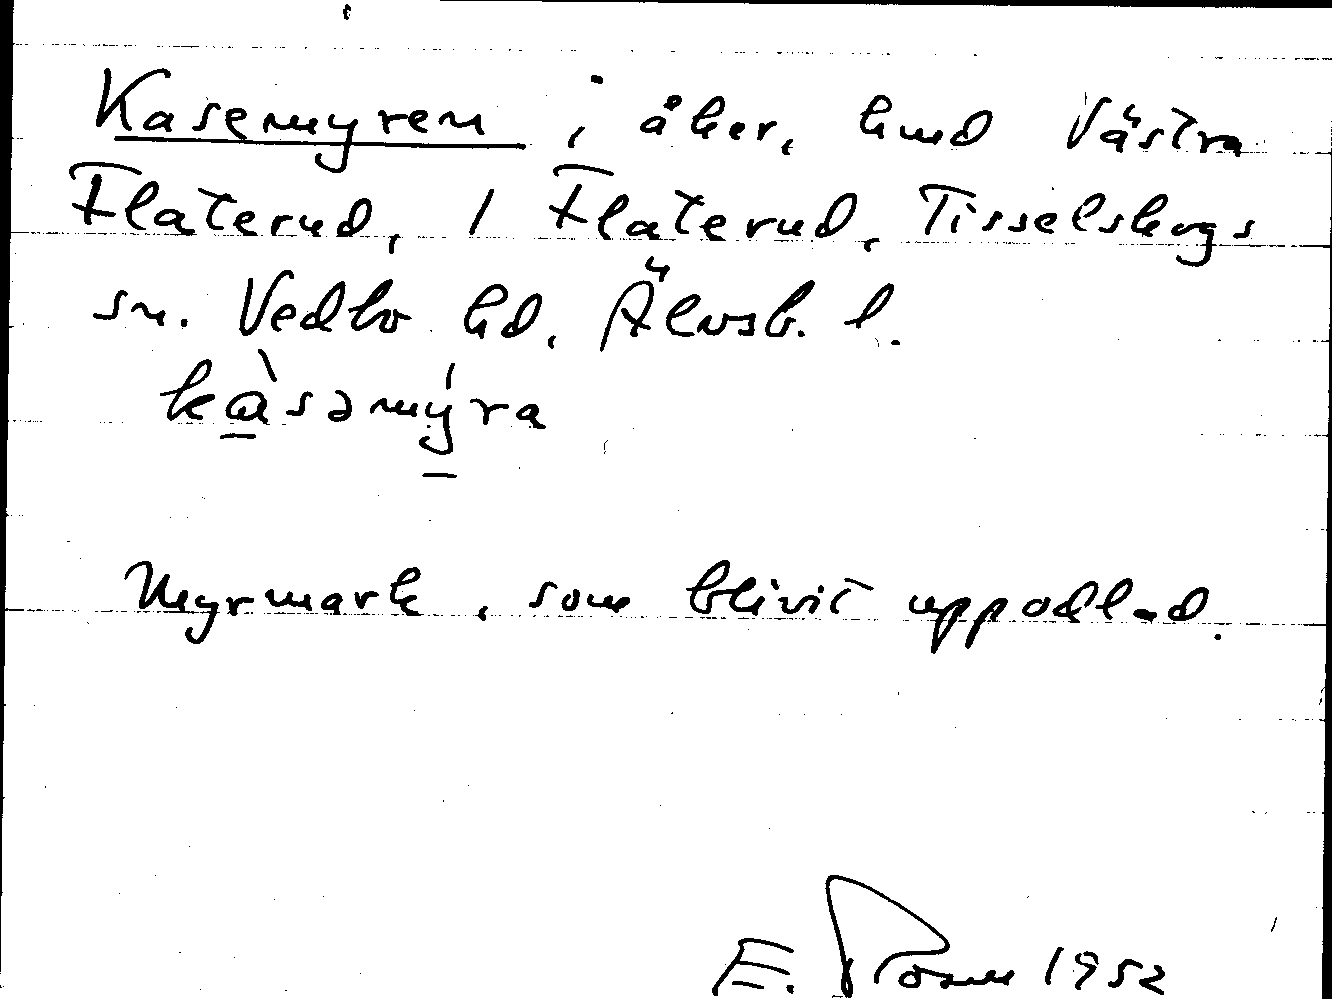 Kasemyren, åker, hmd Västra
Flaterud, 1 Flaterud, Tisselskogs
sn. Vedbo hd. Älvsb. l.
kàsəmýra
Myrmark, som blivit uppodlad.
E. Rosm 1952